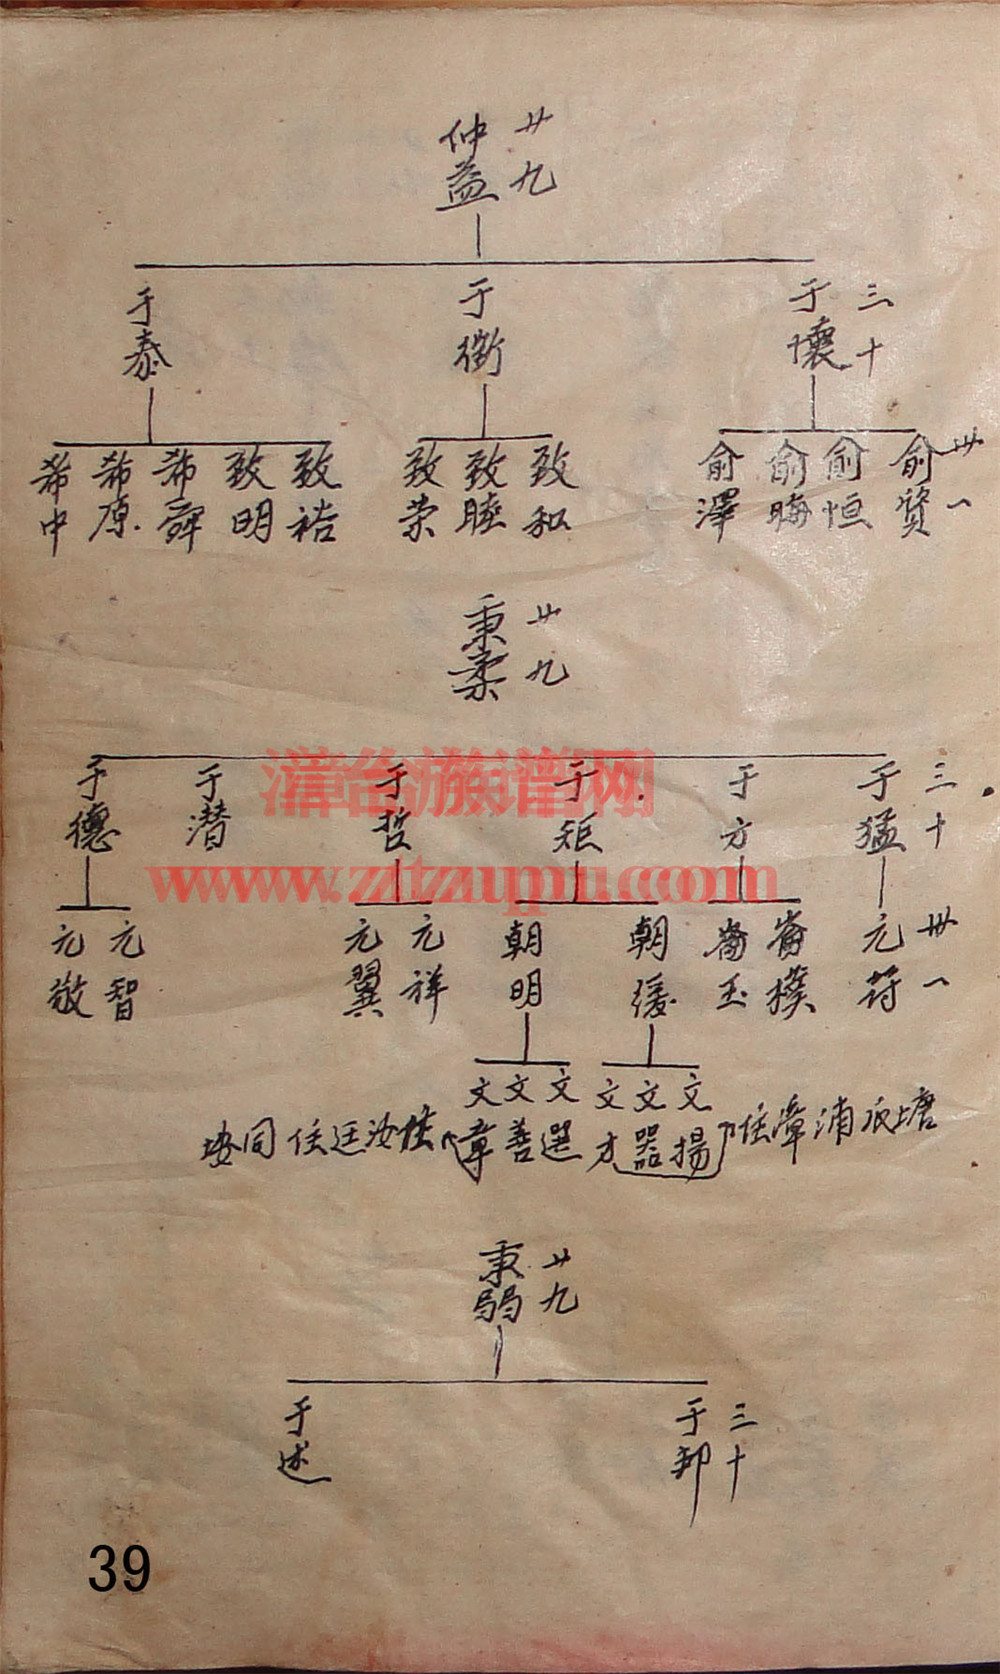 廿九 仲益
三十 于懷 于衡 于泰
卅一 俞贊 俞恒 俞晦 俞澤 致和 致睦 致荣 致裕 致明 希舜 希原 希中
廿九 秉柔
三十 于猛 于方 于矩 于哲 于潜 于德
漳台族谱网
www.ztzupu.com
卅一 元符 崙樸 崙玉 朝缓 朝明 元祥 元翼 元智 元敬
文揚 文器 文才 文選 文善 文章
住漳浦 塘
住汝廷 住同安
廿九 秉弱
三十 于邦 于述
39